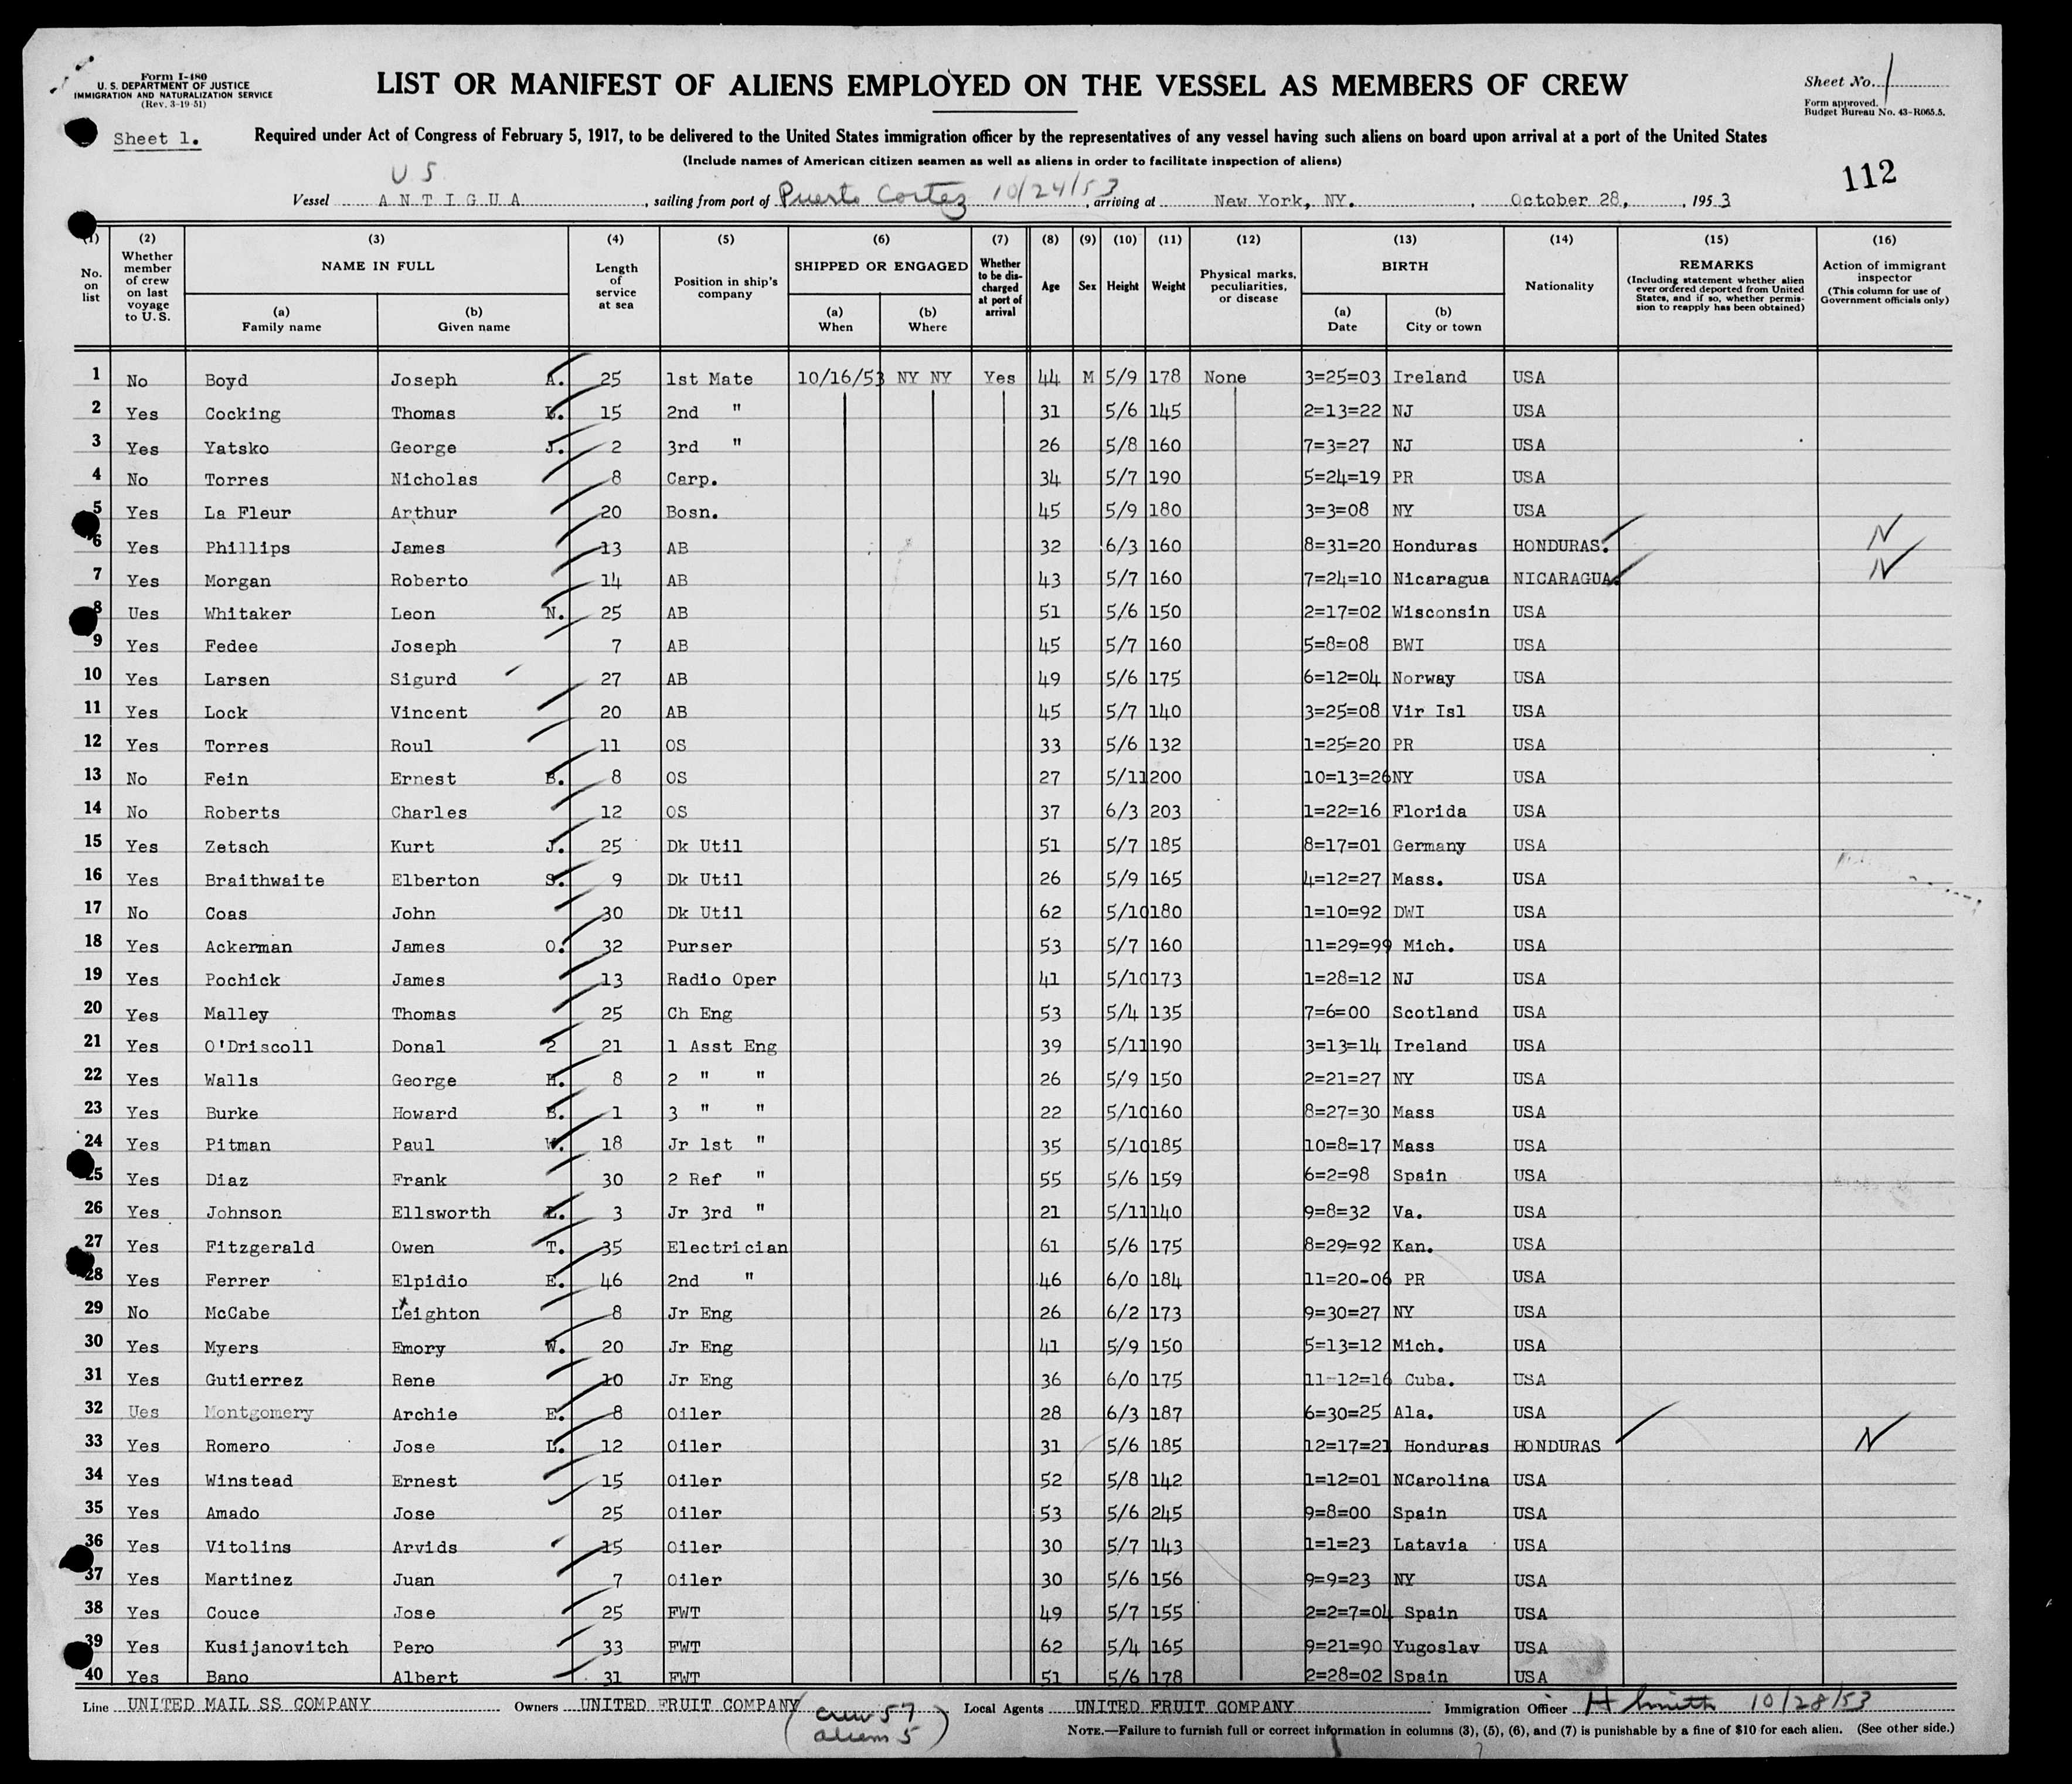 Form I-480
U. S. DEPARTMENT OF JUSTICE
IMMIGRATION AND NATURALIZATION SERVICE
(Rev. 3-19-51)
LIST OR MANIFEST OF ALIENS EMPLOYED ON THE VESSEL AS MEMBERS OF CREW
Sheet No. 1
Form approved.
Budget Bureau No. 43-R065.5.
Sheet 1.
Required under Act of Congress of February 5, 1917, to be delivered to the United States immigration officer by the representatives of any vessel having such aliens on board upon arrival at a port of the United States
(Include names of American citizen seamen as well as aliens in order to facilitate inspection of aliens)
112
U S
Vessel ANTIGUA, sailing from port of Puerto Cortez 10/24/53, arriving at New York, NY., October 28, 1953
(1) No. on list
(2) Whether member of crew on last voyage to U. S.
(3) NAME IN FULL (a) Family name (b) Given name
(4) Length of service at sea
(5) Position in ship's company
(6) SHIPPED OR ENGAGED (a) When (b) Where
(7) Whether to be discharged at port of arrival
(8) Age
(9) Sex
(10) Height
(11) Weight
(12) Physical marks, peculiarities, or disease
(13) BIRTH (a) Date (b) City or town
(14) Nationality
(15) REMARKS (Including statement whether alien ever ordered deported from United States, and if so, whether permission to reapply has been obtained)
(16) Action of immigrant inspector (This column for use of Government officials only)
1 No Boyd Joseph A. 25 1st Mate 10/16/53 NY NY Yes 44 M 5/9 178 None 3=25=03 Ireland USA
2 Yes Cocking Thomas L. 15 2nd " 31 5/6 145 2=13=22 NJ USA
3 Yes Yatsko George J. 2 3rd " 26 5/8 160 7=3=27 NJ USA
4 No Torres Nicholas 8 Carp. 34 5/7 190 5=24=19 PR USA
5 Yes La Fleur Arthur 20 Bosn. 45 5/9 180 3=3=08 NY USA
6 Yes Phillips James 13 AB 32 6/3 160 8=31=20 Honduras HONDURAS. N
7 Yes Morgan Roberto 14 AB 43 5/7 160 7=24=10 Nicaragua NICARAGUA. N
8 Ues Whitaker Leon N. 25 AB 51 5/6 150 2=17=02 Wisconsin USA
9 Yes Fedee Joseph 7 AB 45 5/7 160 5=8=08 BWI USA
10 Yes Larsen Sigurd 27 AB 49 5/6 175 6=12=04 Norway USA
11 Yes Lock Vincent 20 AB 45 5/7 140 3=25=08 Vir Isl USA
12 Yes Torres Roul 11 OS 33 5/6 132 1=25=20 PR USA
13 No Fein Ernest B. 8 OS 27 5/11 200 10=13=26 NY USA
14 No Roberts Charles 12 OS 37 6/3 203 1=22=16 Florida USA
15 Yes Zetsch Kurt J. 25 Dk Util 51 5/7 185 8=17=01 Germany USA
16 Yes Braithwaite Elberton S. 9 Dk Util 26 5/9 165 4=12=27 Mass. USA
17 No Coas John 30 Dk Util 62 5/10 180 1=10=92 DWI USA
18 Yes Ackerman James O. 32 Purser 53 5/7 160 11=29=99 Mich. USA
19 Yes Pochick James 13 Radio Oper 41 5/10 173 1=28=12 NJ USA
20 Yes Malley Thomas 25 Ch Eng 53 5/4 135 7=6=00 Scotland USA
21 Yes O'Driscoll Donal 2 21 1 Asst Eng 39 5/11 190 3=13=14 Ireland USA
22 Yes Walls George H. 8 2 " " 26 5/9 150 2=21=27 NY USA
23 Yes Burke Howard B. 1 3 " " 22 5/10 160 8=27=30 Mass USA
24 Yes Pitman Paul W. 18 Jr 1st " 35 5/10 185 10=8=17 Mass USA
25 Yes Diaz Frank 30 2 Ref " 55 5/6 159 6=2=98 Spain USA
26 Yes Johnson Ellsworth L. 3 Jr 3rd " 21 5/11 140 9=8=32 Va. USA
27 Yes Fitzgerald Owen T. 35 Electrician 61 5/6 175 8=29=92 Kan. USA
28 Yes Ferrer Elpidio E. 46 2nd " 46 6/0 184 11=20-06 PR USA
29 No McCabe Leighton 8 Jr Eng 26 6/2 173 9=30=27 NY USA
30 Yes Myers Emory W. 20 Jr Eng 41 5/9 150 5=13=12 Mich. USA
31 Yes Gutierrez Rene 10 Jr Eng 36 6/0 175 11-12=16 Cuba. USA
32 Ues Montgomery Archie E. 8 Oiler 28 6/3 187 6=30=25 Ala. USA
33 Yes Romero Jose L. 12 Oiler 31 5/6 185 12=17=21 Honduras HONDURAS N
34 Yes Winstead Ernest 15 Oiler 52 5/8 142 1=12=01 NCarolina USA
35 Yes Amado Jose 25 Oiler 53 5/6 245 9=8=00 Spain USA
36 Yes Vitolins Arvids 15 Oiler 30 5/7 143 1=1=23 Latavia USA
37 Yes Martinez Juan 7 Oiler 30 5/6 156 9=9=23 NY USA
38 Yes Couce Jose 25 FWT 49 5/7 155 2=2=7=04 Spain USA
39 Yes Kusijanovitch Pero 33 FWT 62 5/4 165 9=21=90 Yugoslav USA
40 Yes Bano Albert 31 FWT 51 5/6 178 2=28=02 Spain USA
Line UNITED MAIL SS COMPANY Owners UNITED FRUIT COMPANY Local Agents UNITED FRUIT COMPANY Immigration Officer H Smith 10/28/53
(crew 57
aliens 5)
NOTE.—Failure to furnish full or correct information in columns (3), (5), (6), and (7) is punishable by a fine of $10 for each alien. (See other side.)